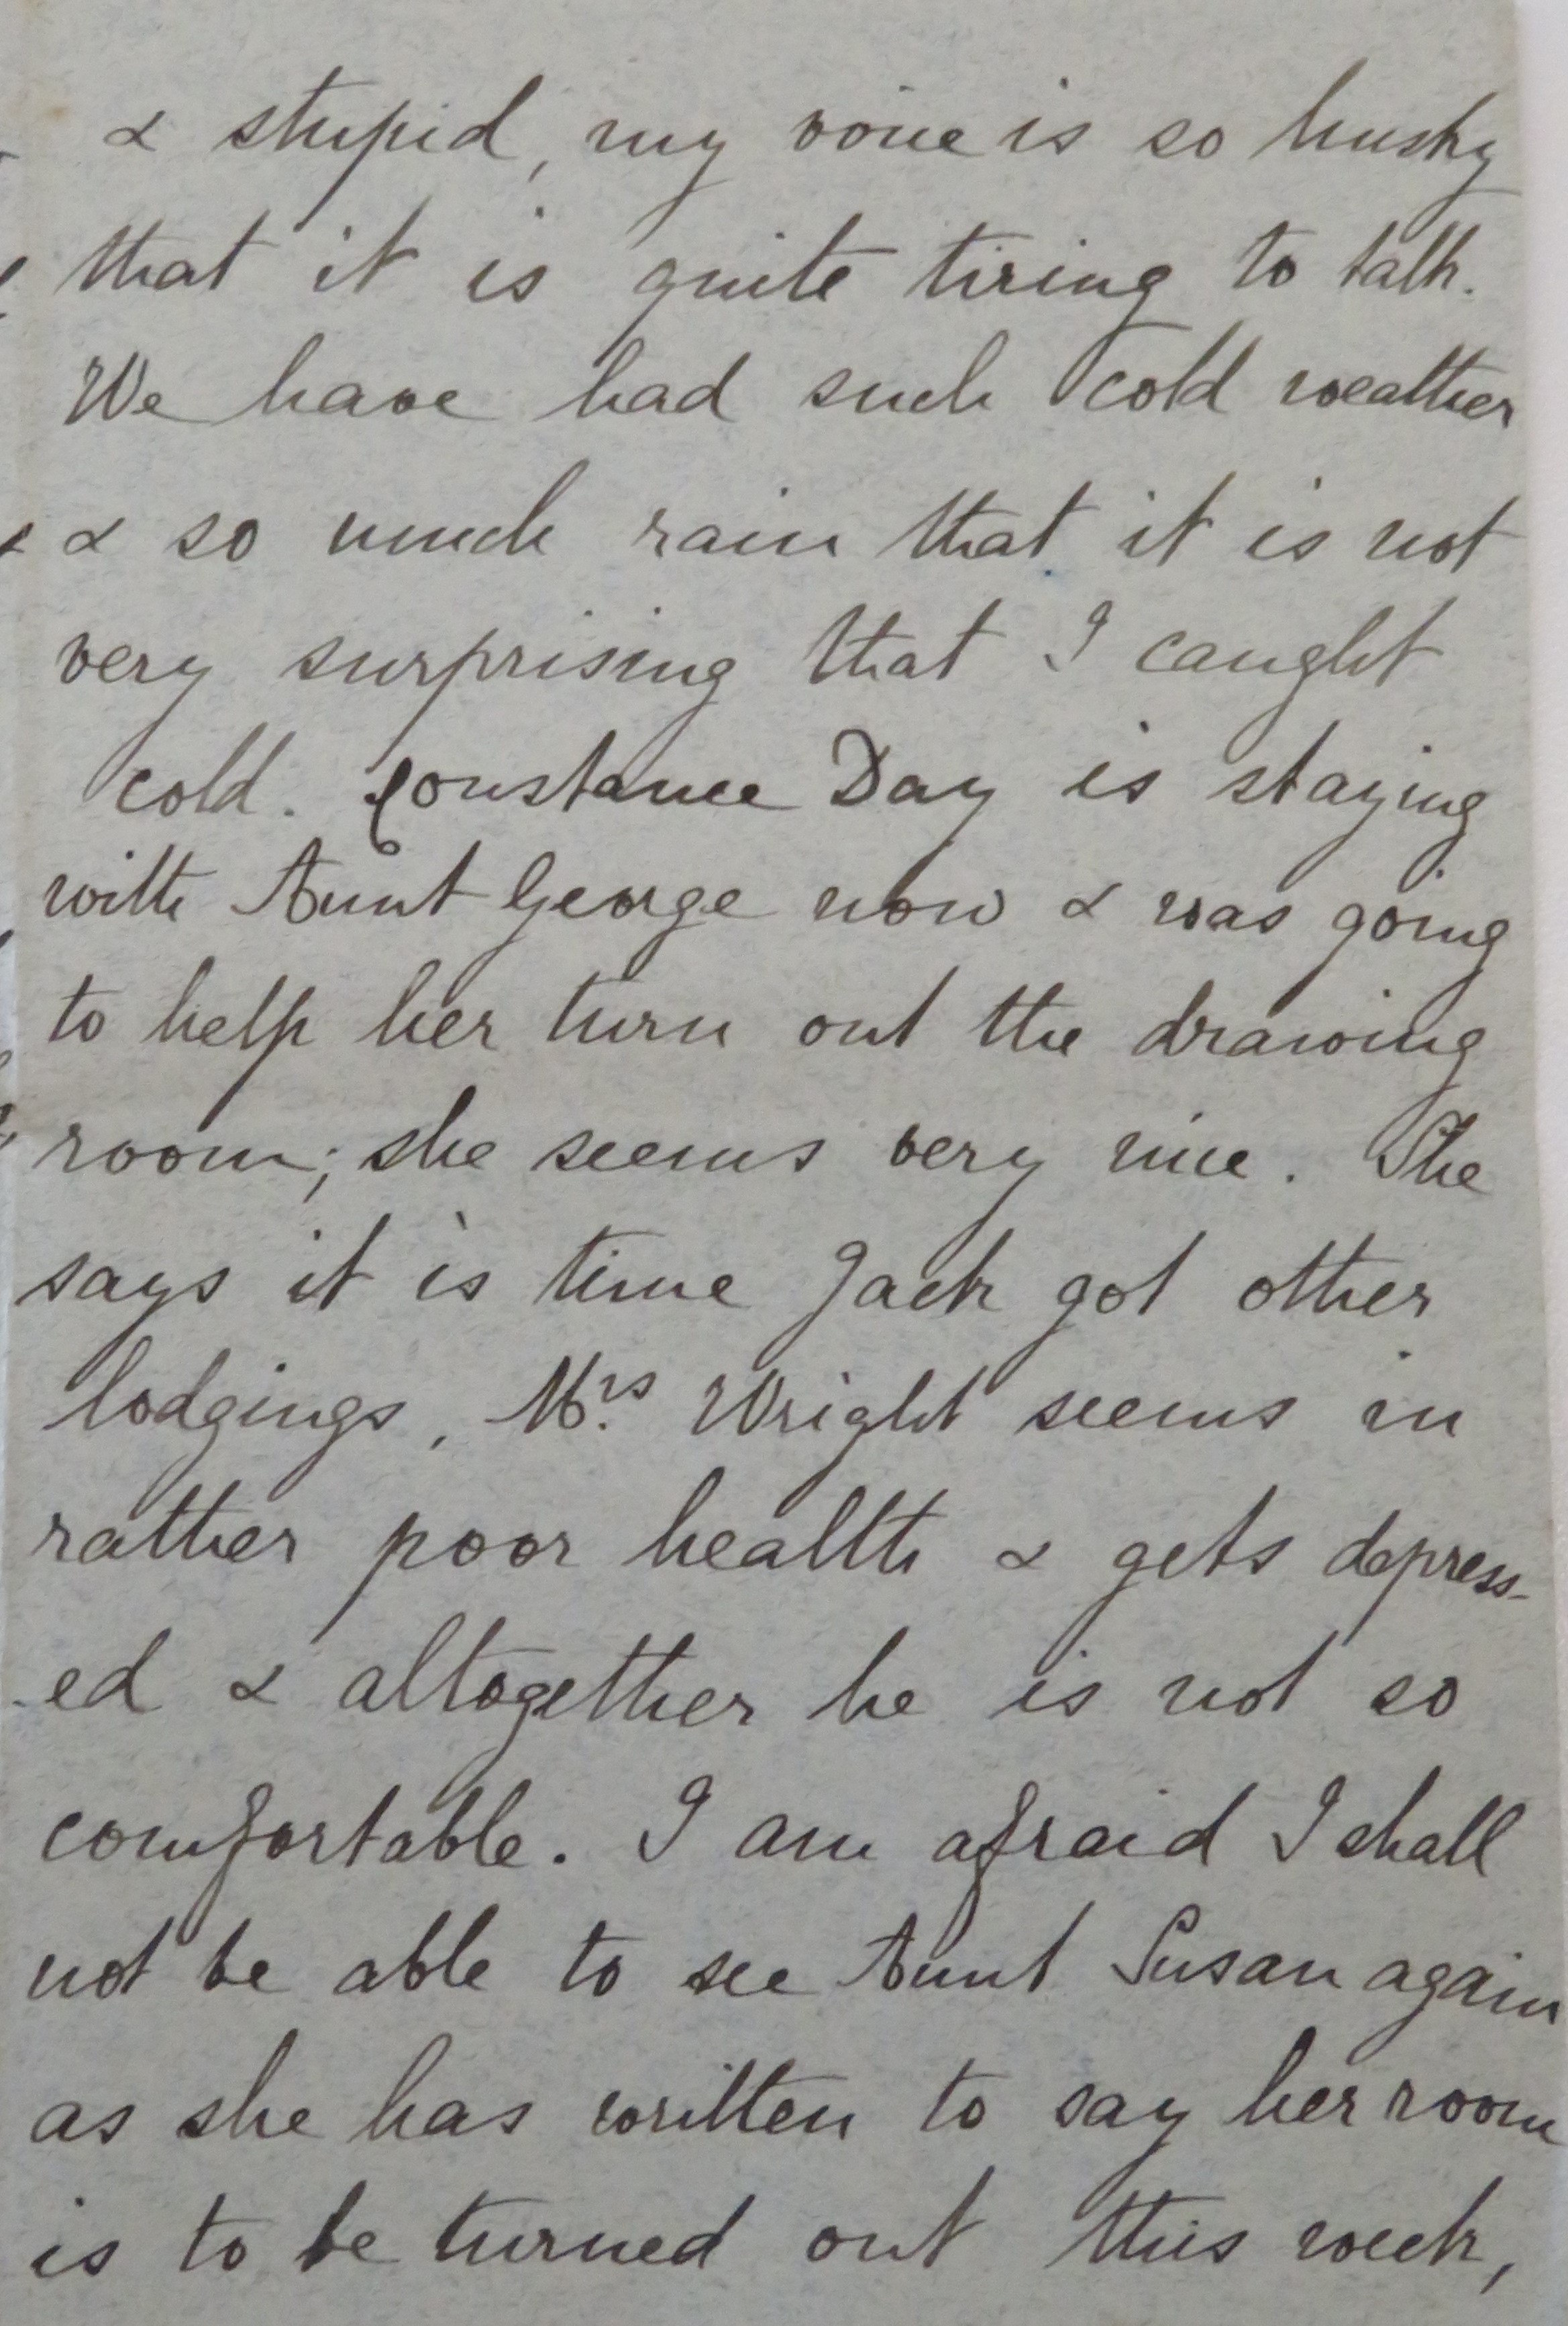 & stupid, my voice is so husky
that it is quite tiring to talk.
We have had such cold weather
& so much rain that it is not
very surprising that I caught
cold. Constance Day is staying
with Aunt George now & was going
to help her turn out the drawing
room; she seems very nice. She
says it is time Jack got other
lodgings, Mrs. Wright seems in
rather poor health & gets depress-
-ed & altogether he is not so
comfortable. I am afraid I shall
not be able to see Aunt Susan again
as she has written to say her room
is to be turned out this week,